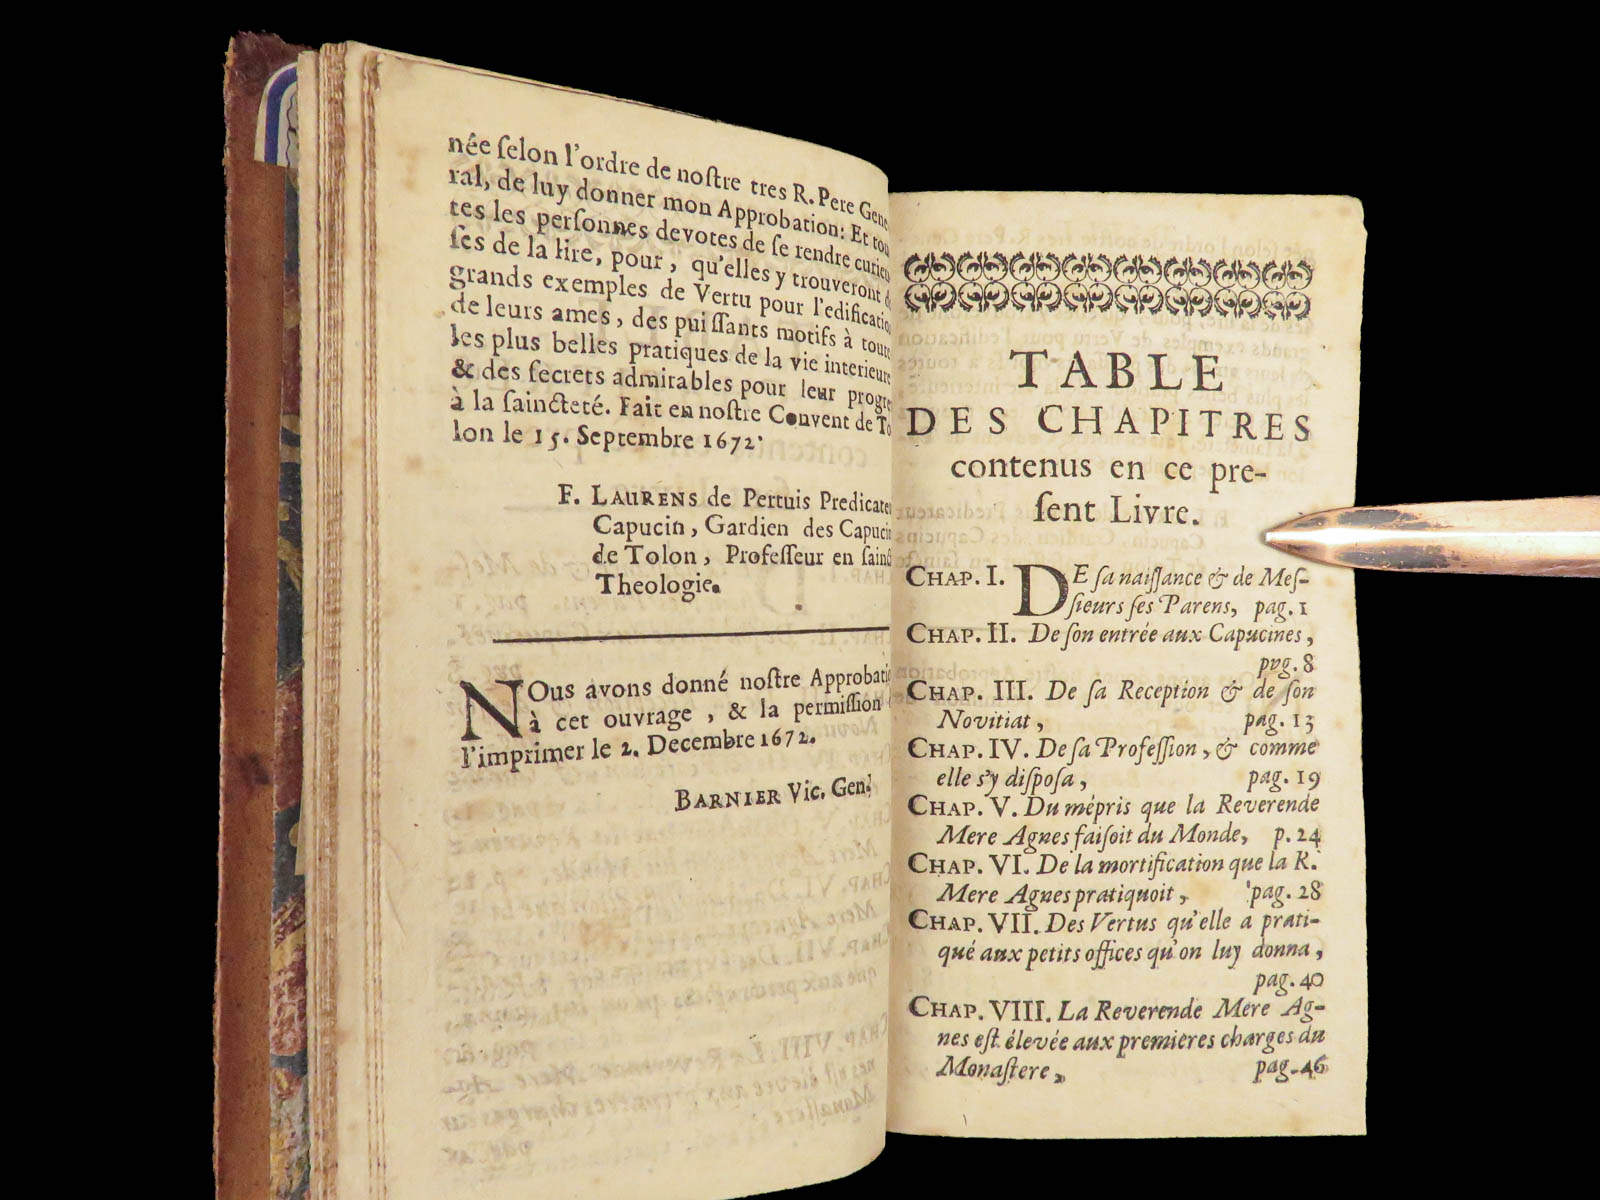 née ſelon l'ordre de noſtre tres R. Pere Gene
ral, de luy donner mon Approbation: Et tou
tes les perſonnes devotes de ſe rendre curieu
ſes de la lire, pour, qu'elles y trouveront
grands exemples de Vertu pour l'edificatio
de leurs ames, des puiſſants motifs à toute
les plus belles pratiques de la vie interieure
& des ſecrets admirables pour leur progre
à la ſaincteté. Fait en noſtre Convent de To
lon le 15. Septembre 1672.
F. LAURENS de Pertuis Predicate
Capucin, Gardien des Capucin
de Tolon, Profeſſeur en ſainct
Theologie.
NOus avons donné noſtre Approbati
à cet ouvrage, & la permiſſion
l'imprimer le 2. Decembre 1672.
BARNIER Vic. Gen.
TABLE
DES CHAPITRES
contenus en ce pre-
ſent Livre.
CHAP. I. DE ſa naiſſance & de Meſ-
ſieurs ſes Parens, pag. 1
CHAP. II. De ſon entrée aux Capucines,
pvg. 8
CHAP. III. De ſa Reception & de ſon
Novitiat, pag. 13
CHAP. IV. De ſa Profeſſion, & comme
elle s'y diſpoſa, pag. 19
CHAP. V. Du mépris que la Reverende
Mere Agnes faiſoit du Monde, p. 24
CHAP. VI. De la mortification que la R.
Mere Agnes pratiquoit, pag. 28
CHAP. VII. Des Vertus qu'elle a prati-
qué aux petits offices qu'on luy donna,
pag. 40
CHAP. VIII. La Reverende Mere Ag-
nes eſt élevée aux premieres charges du
Monaſtere, pag. 46